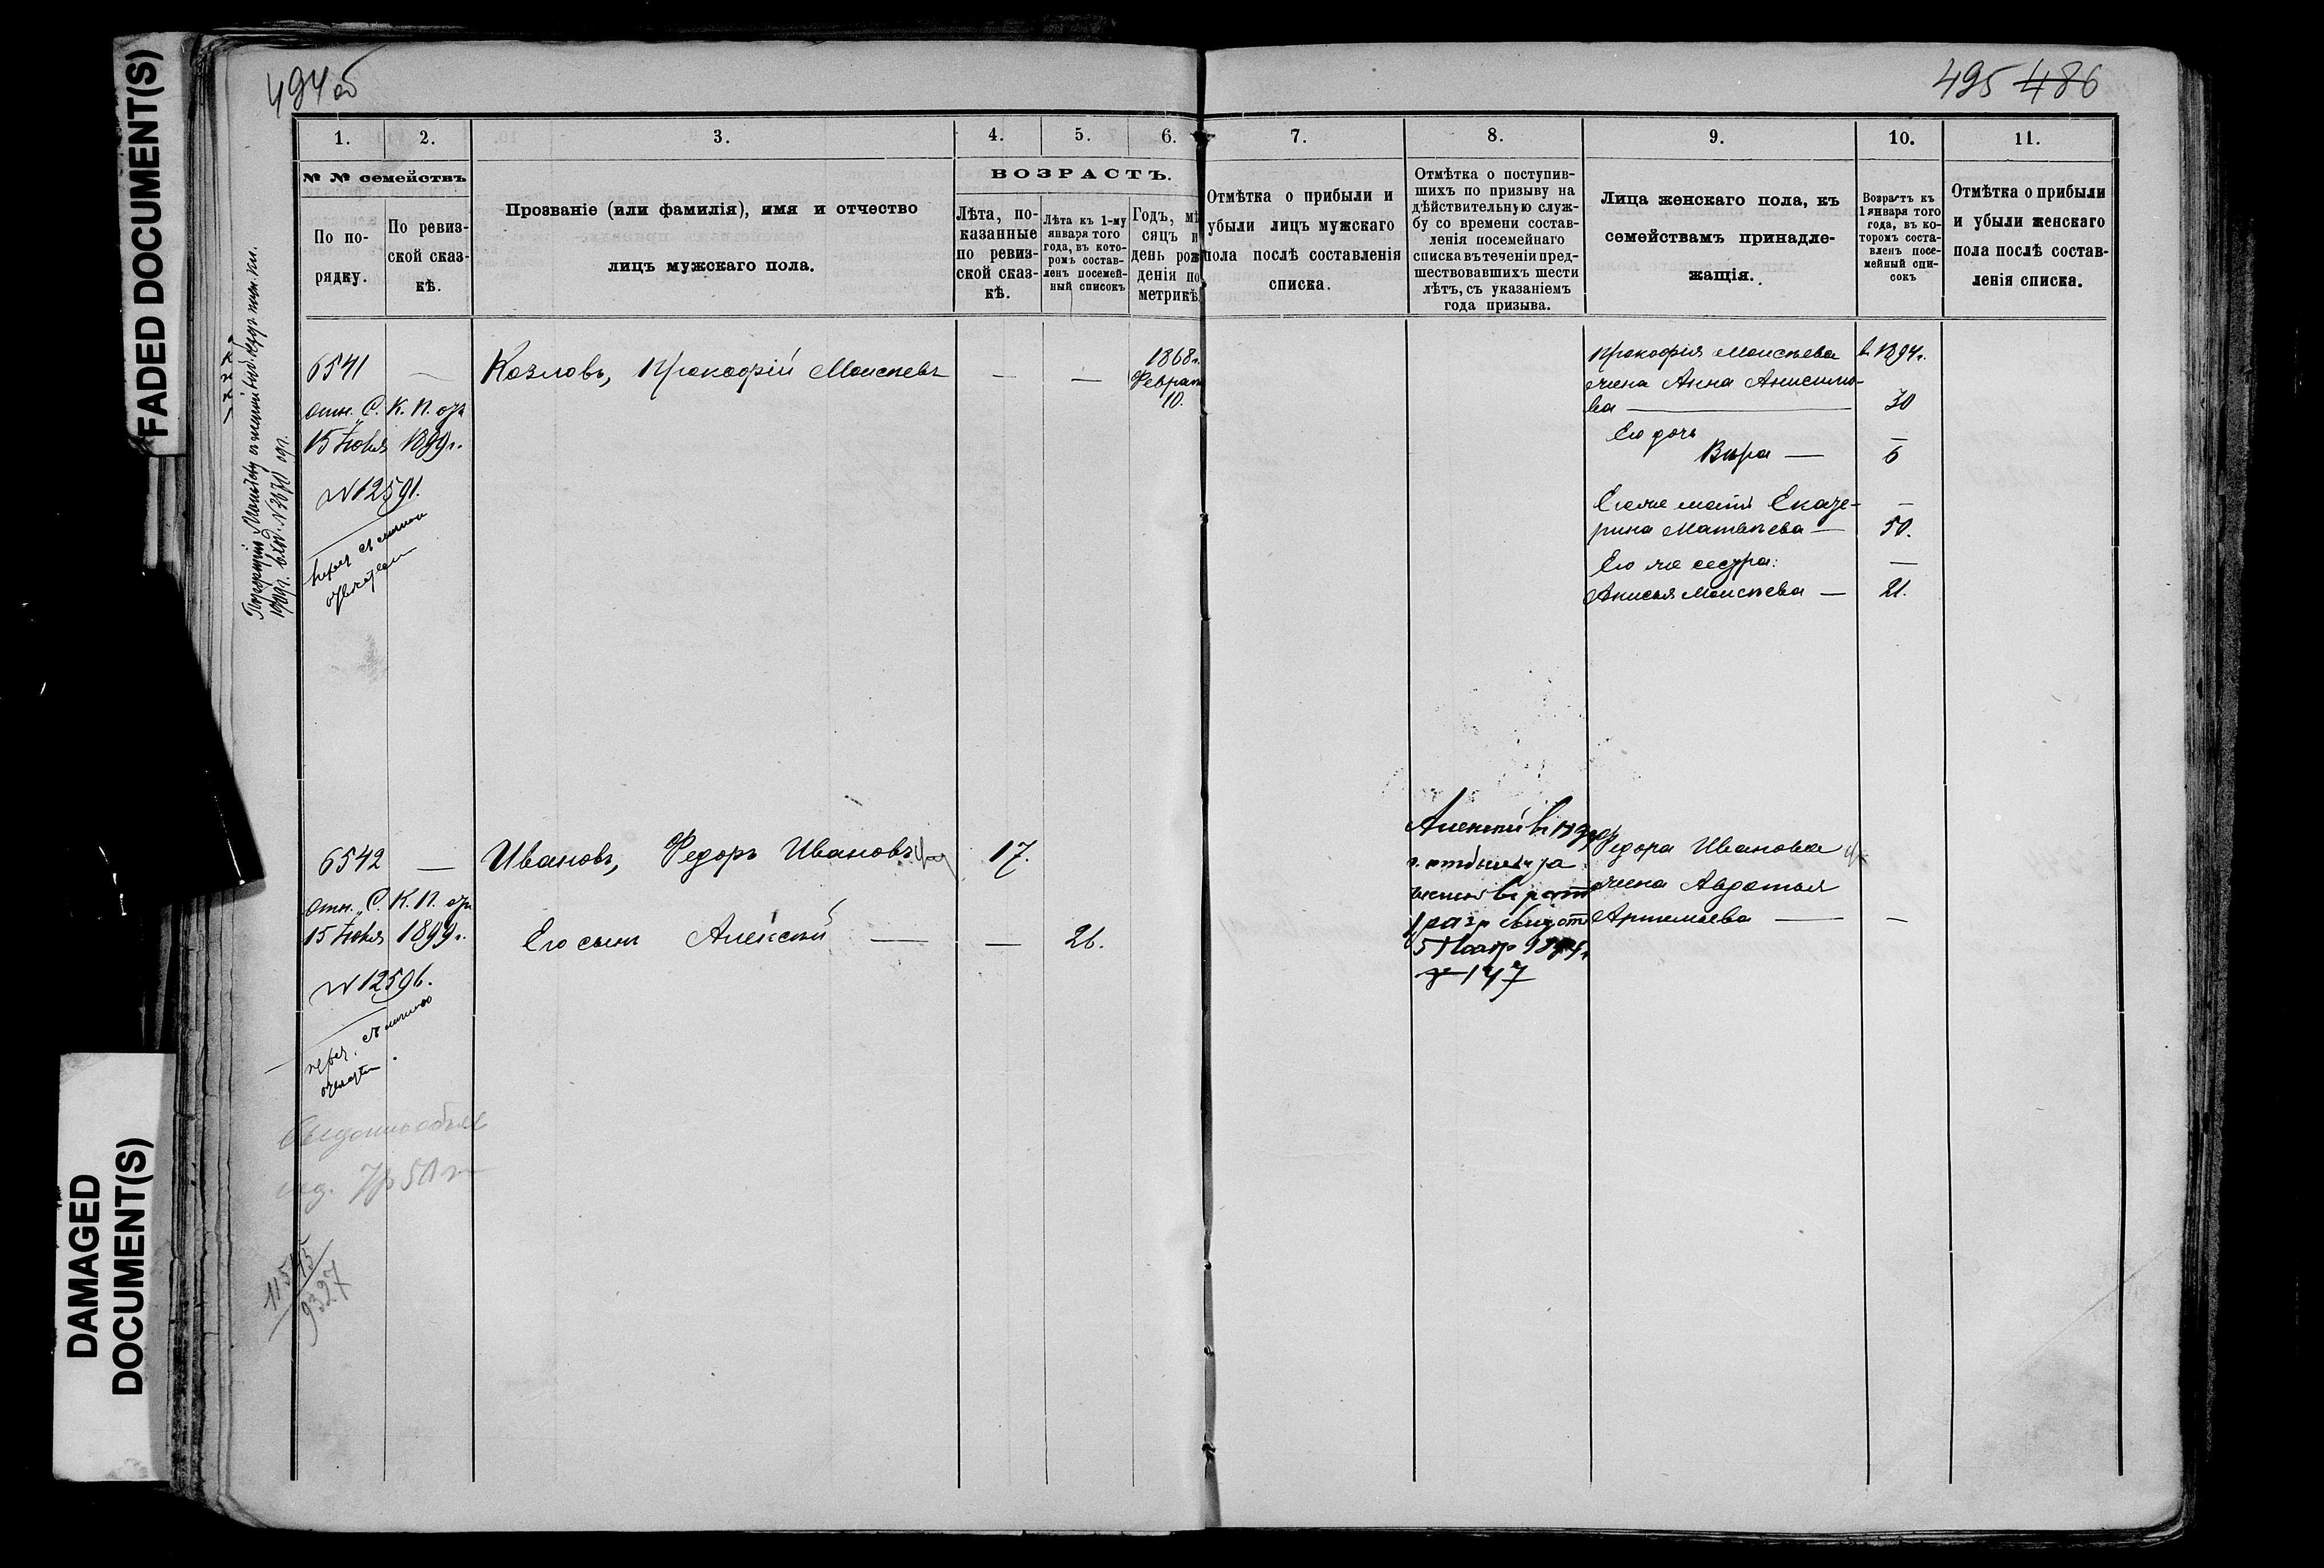 FADED DOCUMENT(S)
DAMAGED
DOCUMENT(S)
494 об
495 486
1.
2.
3.
4.
5.
6.
7.
8.
9.
10.
11.
№ № семействъ
По по-
рядку.
По ревиз-
ской сказ-
кѣ.
Прозваніе (или фамилія), имя и отчество
лицъ мужскаго пола.
ВОЗРАСТЪ.
Лѣта, по-
казанные
по ревиз-
ской сказ-
кѣ.
Лѣта къ 1-му
января того
года, въ кото-
ромъ состав-
ленъ посемей-
ный списокъ
Годъ, мѣ
сяцъ и
день рож
денія по
метрикѣ.
Отмѣтка о прибыли и
убыли лицъ мужскаго
пола послѣ составленія
списка.
Отмѣтка о поступив-
шихъ по призыву на
дѣйствительную служ-
бу со времени состав-
ленія посемейнаго
списка въ теченіи пред-
шествовавшихъ шести
лѣтъ, съ указаніемъ
года призыва.
Лица женскаго пола, къ
семействамъ принадле-
жащія.
Возрастъ къ
1 января того
года, въ ко-
торомъ соста-
вленъ посе-
мейный спи-
сокъ
Отмѣтка о прибыли
и убыли женскаго
пола послѣ состав-
ленія списка.
6541 —
отн. С. К. П. отъ
15 Іюня 1899 г.
N 12591.
Козловъ, Прокофій Моисѣевъ — —
1868 г.
Февраля
10.
Прокофія Моисѣева в. 1894 г.
жена Анна Анисимо-
ва — 30
Его дочь
Вѣра — 6
Его же мать Екате-
рина Матвѣева — 50.
Его же сестра:
Анисья Моисѣева — 21.
6542 —
отн. С. К. П. отъ
15 Іюня 1899 г.
N 12596.
Ивановъ, Федоръ Ивановъ 17.
Его сынъ Алексѣй — — 26.
Алексѣй въ
1 разр
147
Федора Иванова
жена Авдотья
Артемьева — —
11545
9327